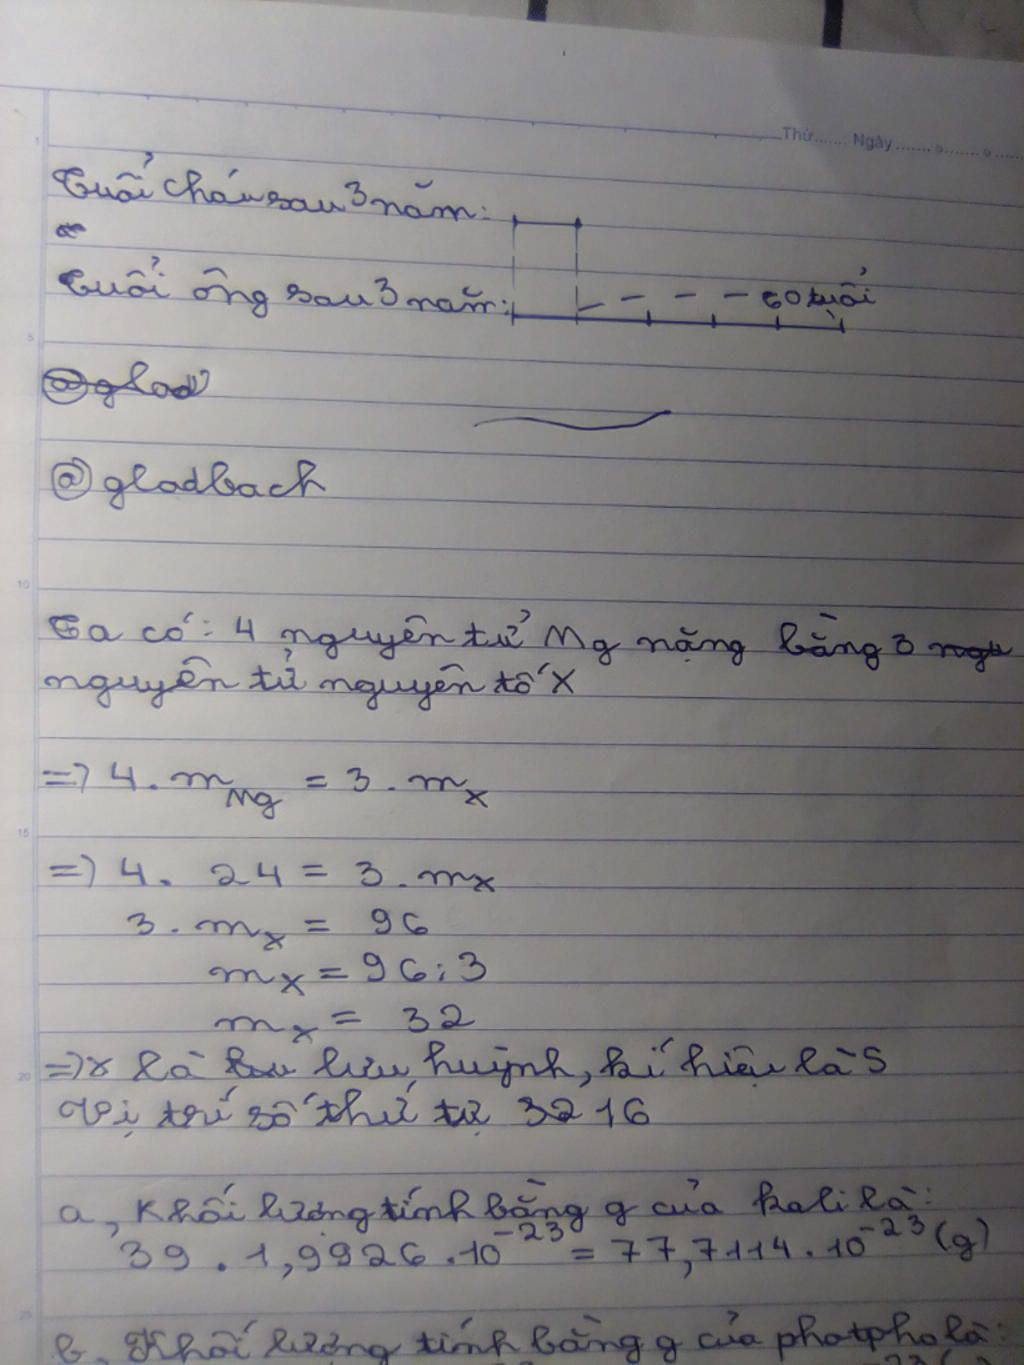 Thứ...... Ngày....... o....... o......
Tuổi cháu sau 3 năm:
Tuổi ông sau 3 năm: 60 tuổi
@glad
@gladbach
Ta có: 4 nguyên tử Mg nặng bằng 3
nguyên tử nguyên tố X
=> 4 . m Mg = 3 . m x
=> 4 . 24 = 3 . m x
3 . m x = 96
m x = 96 : 3
m x = 32
=> X là lưu huỳnh, kí hiệu là S
Vị trí số thứ tự 32 16
a, Khối lượng tính bằng g của kali là:
39 . 1,9926 . 10⁻²³ = 77,7114 . 10⁻²³ (g)
b, Khối lượng tính bằng g của photpho là: